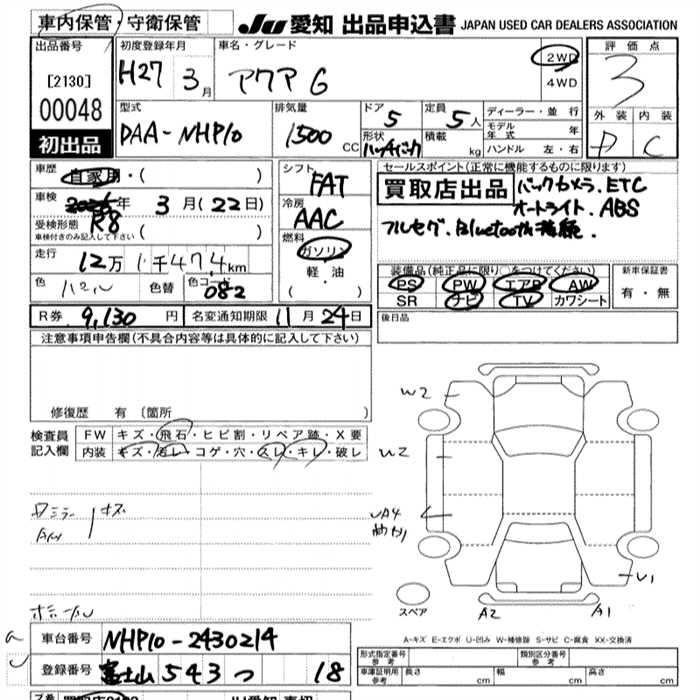 車内保管・守衛保管
JU 愛知 出品申込書 JAPAN USED CAR DEALERS ASSOCIATION
出品番号
[2130]
00048
初出品
初度登録年月
H27 3月
車名・グレード
アクア G
2WD
4WD
評価点
3
外装 内装
D C
型式
DAA-NHP10
排気量
1500 CC
ドア
5
形状
ハッチバック
定員
5人
積載
kg
ディーラー・並行
モデル年式 年
ハンドル 左・右
車歴
自家用・( )
車検
年 3月(22日)
R8
受検形態
車検付きのみ記入して下さい ( )
走行
12万1千474km
色 パール 色替 色コード 082
シフト
FAT
冷房
AAC
燃料
ガソリン
軽・油
・( )
セールスポイント(正常に機能するものに限ります)
買取店出品 バックカメラ、ETC
オートライト、ABS
フルセグ、Bluetooth
装備品(純正品に限り○をつけてください)
PS PW エアB AW
SR ナビ TV カワシート
新車保証書
有・無
後日品
R券 9,130円 名変通知期限 11月24日
注意事項申告欄(不具合内容等は具体的に記入して下さい)
修復歴 有 〔箇所 〕
検査員記入欄
FW キズ・飛石・ヒビ割・リペア跡・X要
内装 キズ・汚レ・コゲ・穴・スレ・キレ・破レ
W2
W2
A4
U1
A2 A1
スペア
キズ
A-キズ E-エクボ U-凹み W-補修跡 S-サビ C-腐食 XX-交換済
車台番号 NHP10-2430214
登録番号 富士山 543 つ 18
形式指定番号 参考
類別区分番号 参考
車庫証明用 参考 長さ cm 幅 cm 高さ cm